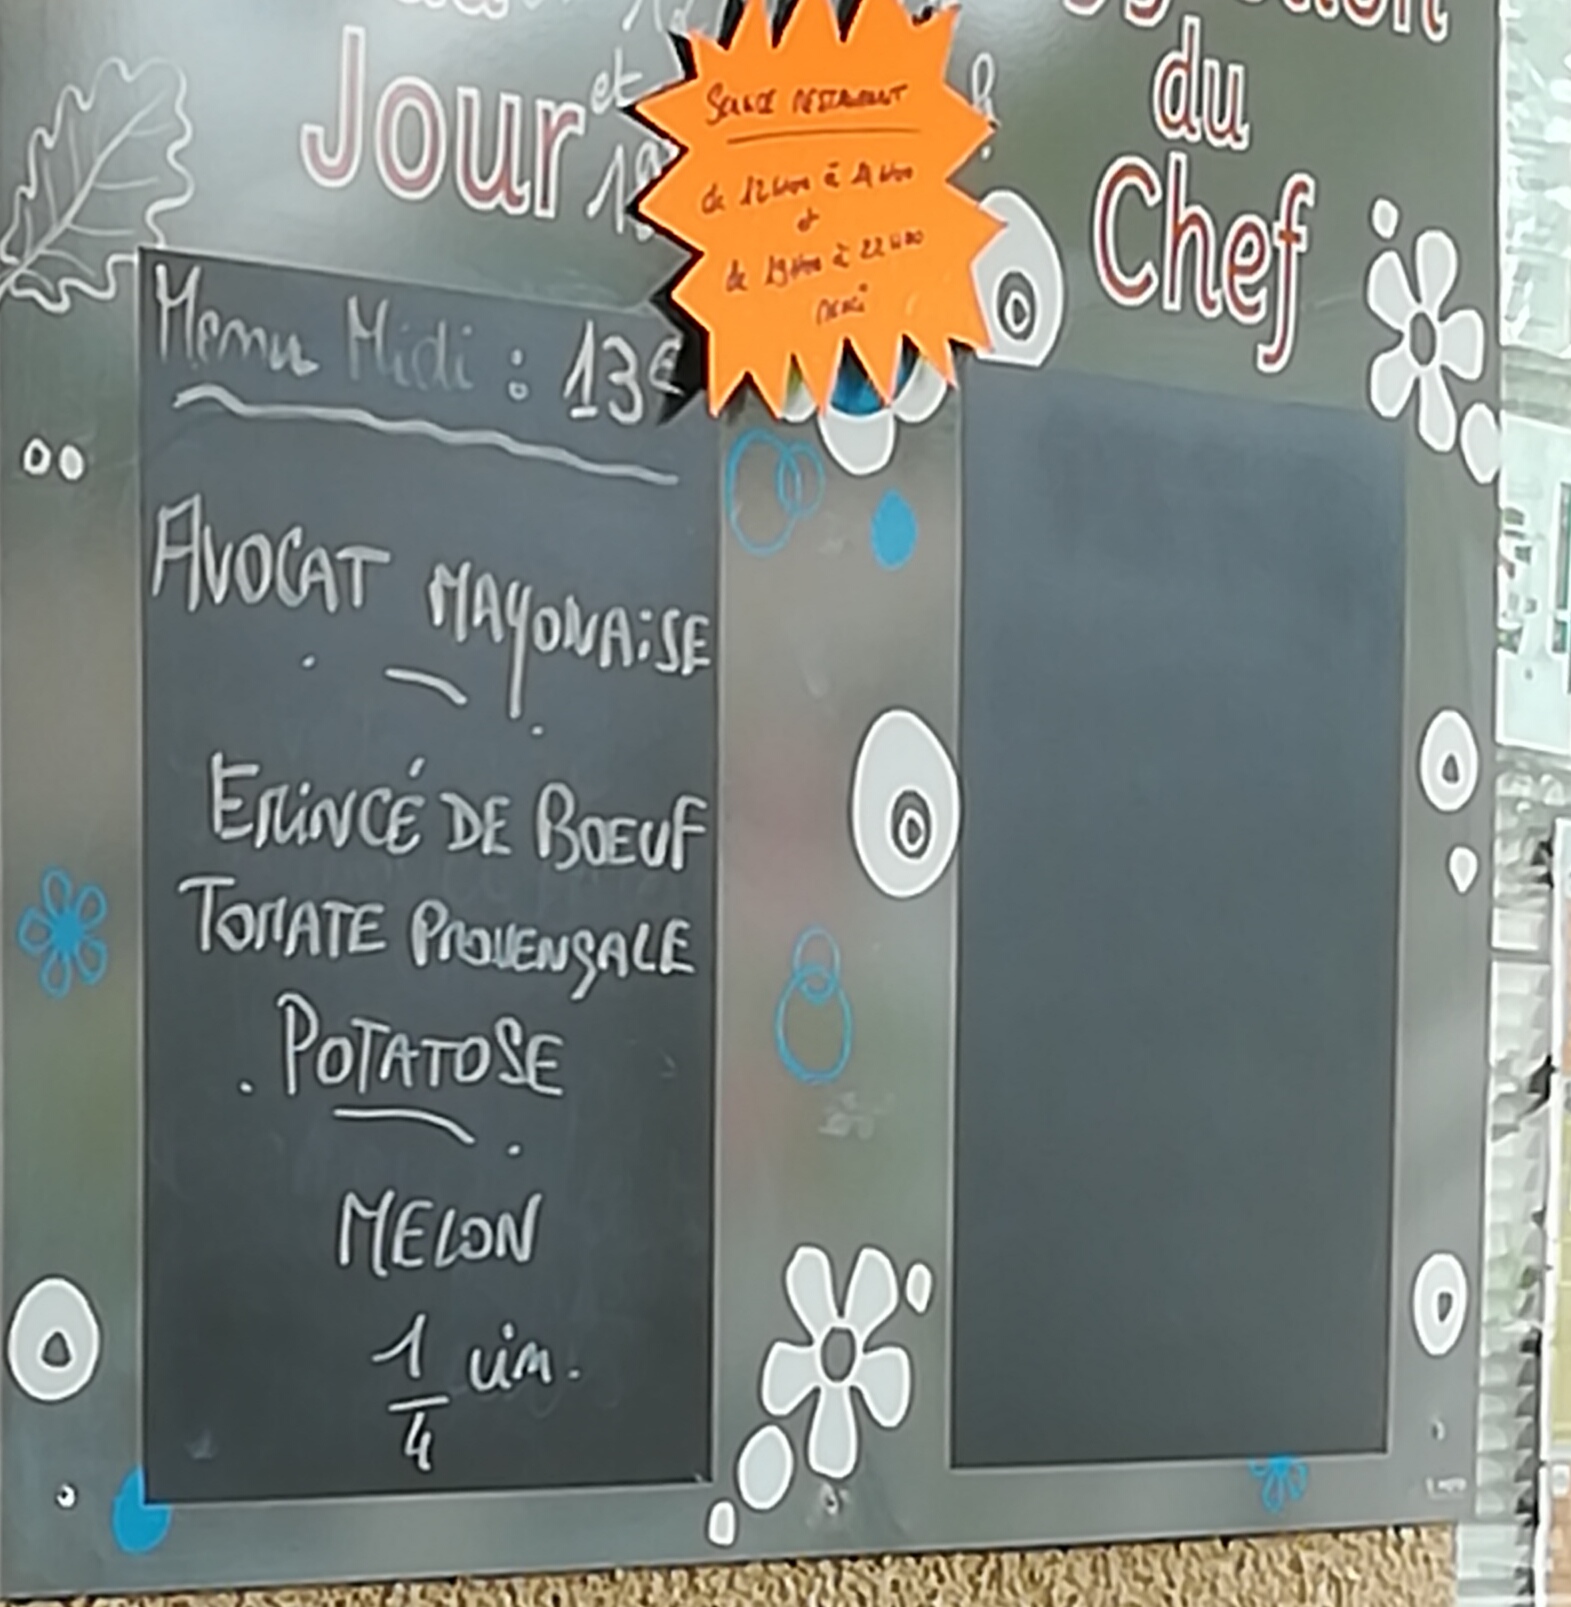 Jour
et
du
Chef
Service restaurant
de 12h00 à 14h00
et
de 19h00 à 22h00
merci
Menu Midi : 13€
AVOCAT MAYONAiSE
EMiNCÉ DE BOEUF
TOMATE PROVENÇALE
POTATOSE
MELON
1/4 vin.